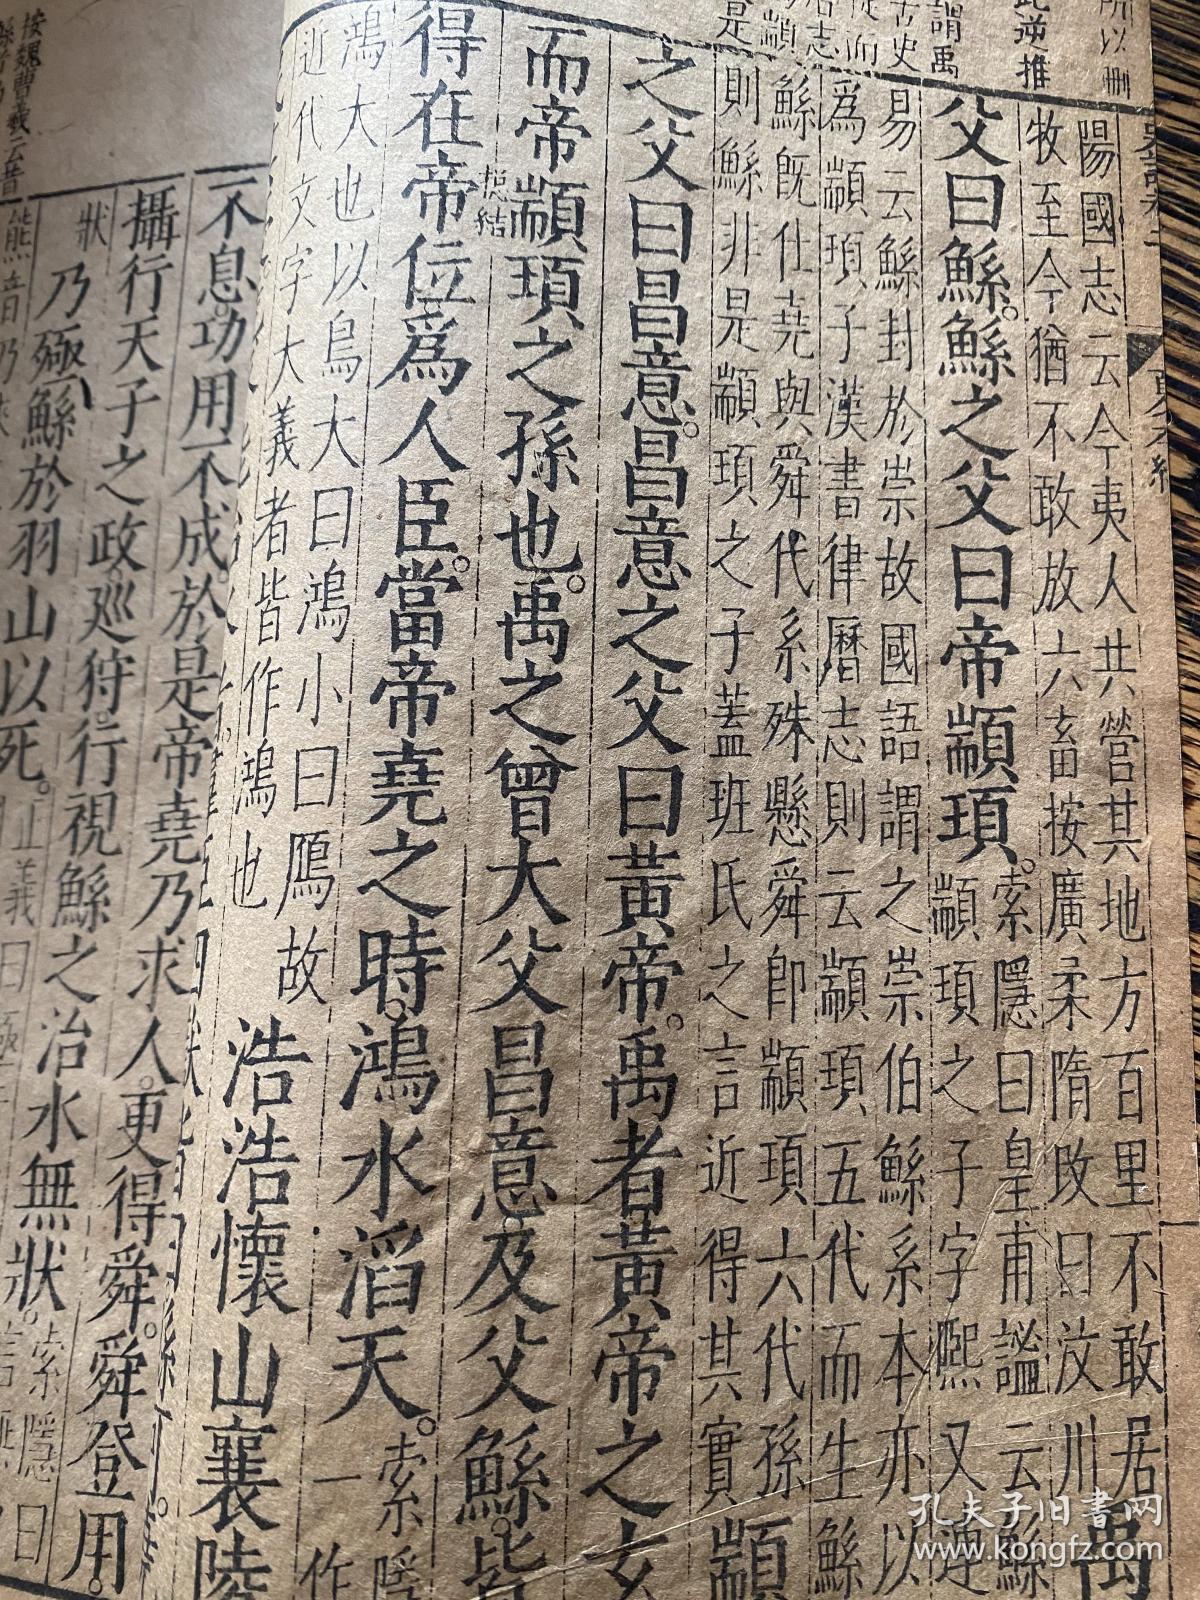 所以刪
此逆推
謂禹
陽國志云今夷人共營其地方百里不敢居
牧至今猶不敢放六畜按廣柔隋改曰汶川
禹
父曰鯀鯀之父曰帝顓頊
索隱曰皇甫謐云鯀
顓頊之子字熙又連
易云鯀封於崇故國語謂之崇伯鯀系本亦以
爲顓頊子漢書律曆志則云顓頊五代而生鯀
鯀既仕堯與舜代系殊懸舜即顓頊六代孫
則鯀非是顓頊之子蓋班氏之言近得其實
顓
之父曰昌意昌意之父曰黃帝禹者黃帝之玄
而帝顓頊之孫也禹之曾大父昌意及父鯀皆
總結
得在帝位爲人臣當帝堯之時鴻水滔天
索隱
一作
鴻大也以鳥大曰鴻小曰鴈故
近代文字大義者皆作鴻也
浩浩懷山襄陵
按魏曹義云昔
不息功用不成於是帝堯乃求人更得舜舜登用
攝行天子之政巡狩行視鯀之治水無狀
索隱曰
狀
乃殛鯀於羽山以死
正義曰殛
孔夫子旧书网
www.kongfz.com